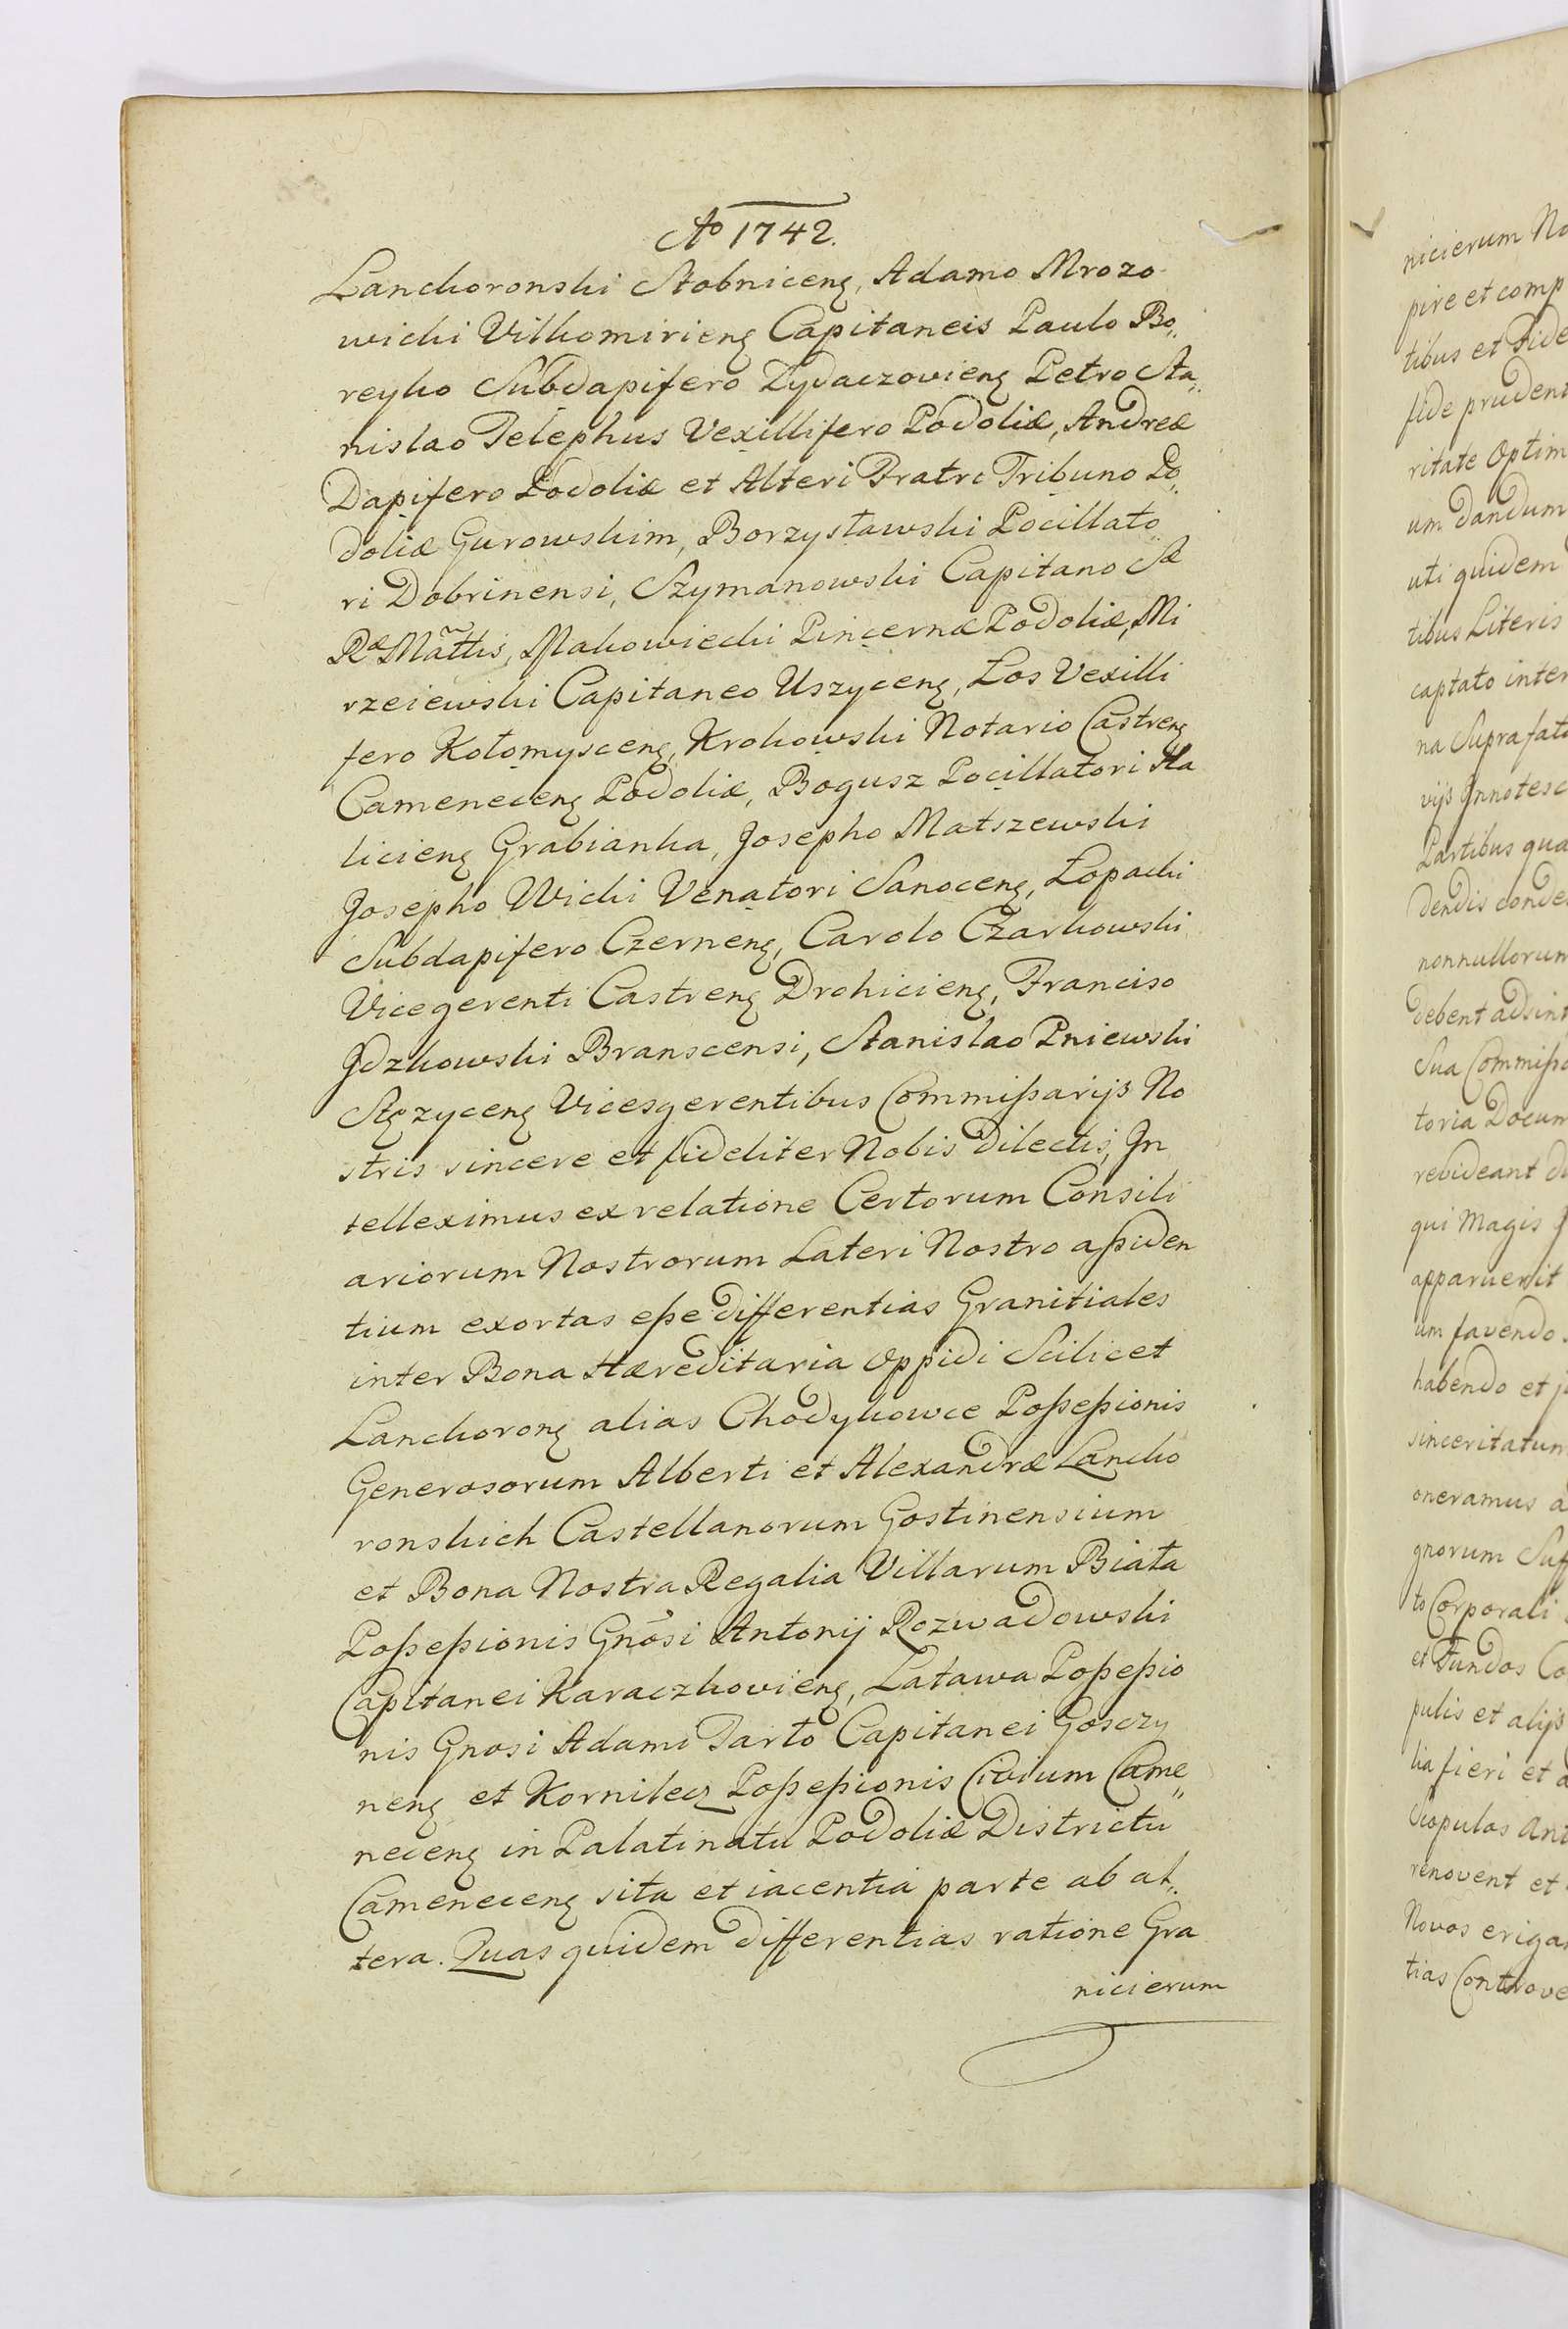 Ao 1742.
Lanckoronski Stobniceng, Adamo Mrozo
wicki Vilkomirieng Capitaneis Paulo Bo„
reyko Subdapifero Zydaczovieng Petro Sta„
nislao Telephus Vexillifero Podoliæ, Andreæ
Dapifero Podoliæ et Alteri Fratri Tribuno Po„
doliæ Gurowskim, Borzysławski Pocillato
ri Dobrinensi, Szymanowski Capitano Sæ
Ræ Mattis, Makowiecki Pincernæ Podoliæ, Mi
rzeiewski Capitaneo Uszyceng, Łos Vexilli
fero Kołomysceng, Krokowski Notario Castreng
Cameneceng Podoliæ, Bogusz Pocillatori Ha
licieng Grabianka, Josepho Matszewski
Josepho Wicki Venatori Sanoceng, Łopacki
Subdapifero Czerneng, Carolo Czarkowski
Vicegerenti Castreng Drohicieng, Franciso
Jdzkowski Branscensi, Stanislao Pniewski
Stęzyceng Vicesgerentibus Commißarijs No
stris sincere et fideliter Nobis dilectis, Jn
telleximus ex relatione Certorum Consili
ariorum Nostrorum Lateri Nostro aßiden
tium exortas eße differentias Granitiales
inter Bona Hæreditaria Oppidi Scilicet
Lanckorong alias Chodykowce Poßeßionis
Generosorum Alberti et Alexandræ Lancko
ronskich Castellanorum Gostinensium
et Bona Nostra Regalia Villarum Biała
Poßeßionis Gnosi Antonij Rozwadowski
Capitanei Karaczkovieng, Latawa Poßeßio
nis Gnosi Adami Tarło Capitanei Gosczy
neng et Kornilecz Poßeßionis Civium Came„
neceng in Palatinatu Podoliæ Districtu
Cameneceng sita et iacentia parte ab al„
tera. Quas quidem differentias ratione Gra
nicierum
nicierum No
pire et comp
tibus et Fide
fide prudent
ritate Optim
um dandum
uti quidem
tibus Literis
captato inter
na Suprafat
vijs Jnnotesc
Partibus qua
dendis conde
nonnullorum
debent adsint
Sua Commißa
toria Docum
revideant
qui Magis
apparuerit
um favendo
habendo et
sinceritatum
oneramus a
gnorum Suf
to Corporali
et Fundos Co
pulis et alijs
lia fieri et
Scopulos Ant
renovent et
Novos eriga
tias Controve